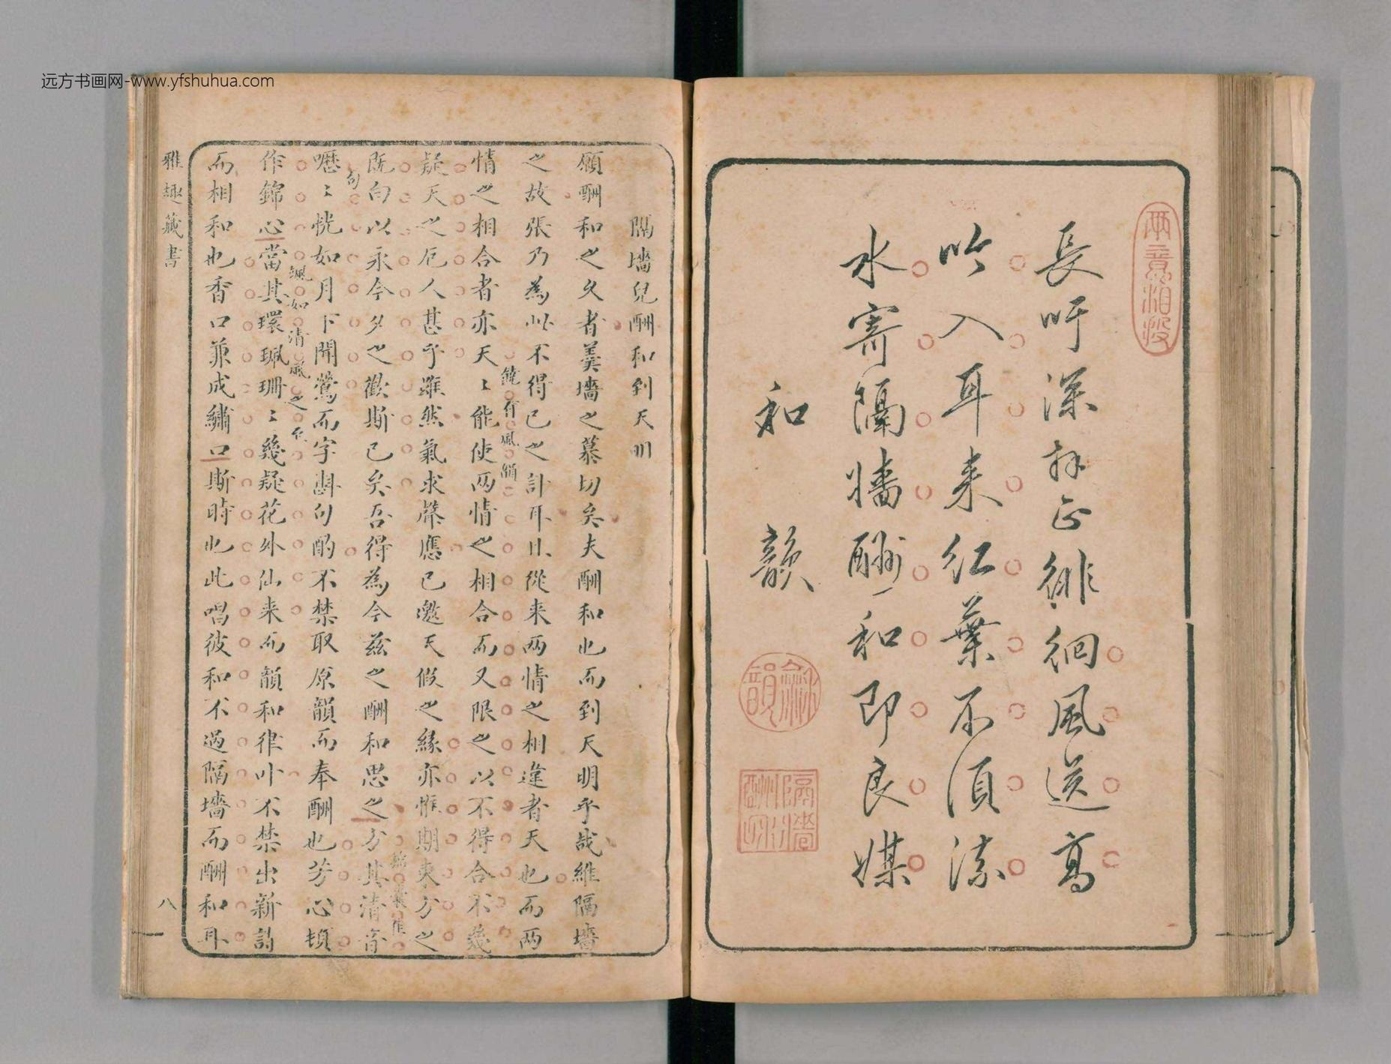 远方书画网-www.yfshuhua.com
兩意相投
長吁深拜正徘徊風送高
吟入耳来紅葉不須流
水寄隔墻酬和即良媒
和韻
隔墻
酬和
隔墻兒酬和到天明
願酬和之久者羹墻之慕切矣夫酬和也而到天明乎哉維隔墻
之故張乃為此不得已之計耳且從来兩情之相違者天也而兩
情之相合者亦天〻能使兩情之相合而又限之以不得合不幾
饒有風韻
疑天之厄人甚乎雖然氣求聲應已邀天假之緣亦惟期来方之
既白以永今夕之歡斯已矣吾得為今茲之酬和思之方其清音
嚦〻恍如月下聞鶯而字斟句酌不禁取原韻而奉酬也芳心頓
作錦心當其環珮珊〻幾疑花外仙来而韻和律叶不禁出新詞
而相和也香口兼成繡口斯時也此唱彼和不過隔墻而酬和耳
雅趣藏書
八